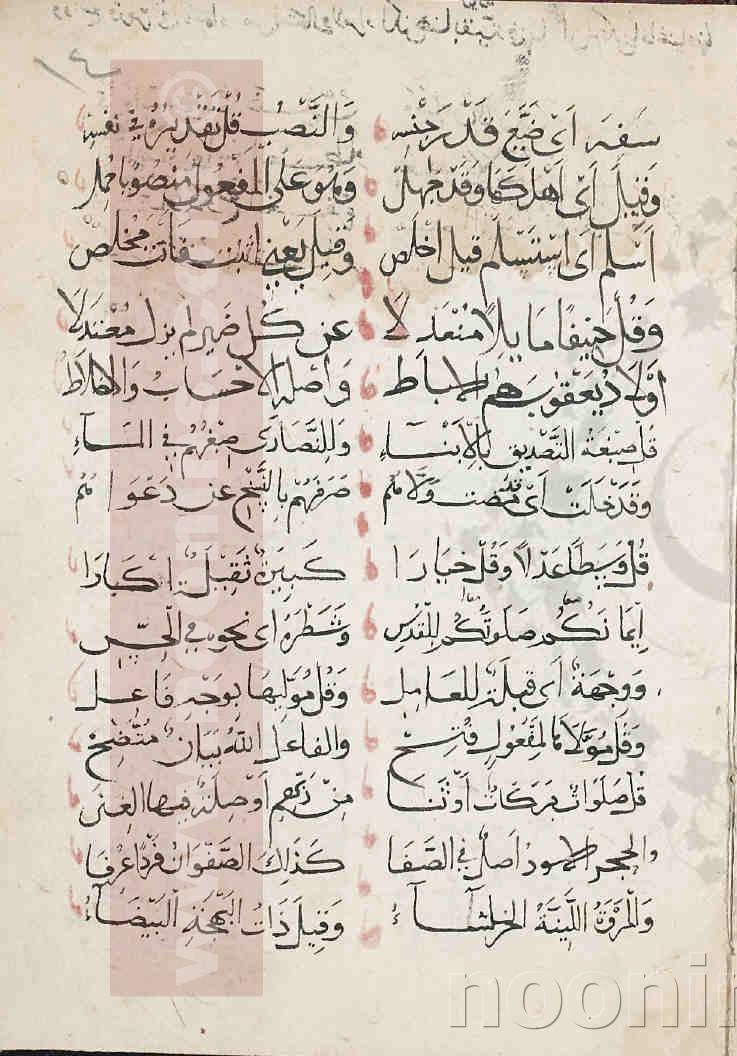 سفه اى ضيع قدر جهله والنصب قل تقديره فى نفسه
وقيل اى اهلكها وقد جهل وهو على المفعول منصوبا حمل
اسلم اى استسلم قيل اخلص وقيل يعنى اثبتن فأنت مخلص
وقل حنيفا مايلا منعدلا عن كل ضير لم يزل معتدلا
اولاد يعقوب هم الاسباط واصله الاحساب والاخلاط
قل صبغة التصديق بالابناء وللنصارى صبغهم فى الماء
وقد خلت اى قد مضت ولاهم صرفهم بالفتح عن دعواهم
قل وسطا عدلا وقل خيارا كبيرة ثقيلة اكبارا
ايمانكم صلوتكم للقدس وشطره اى نحوه فى الحس
ووجهة اى قبلة للعامل وقل موليها بوجه فاعل
وقل مولاها لمفعول فتح والفاعل الله بيان متضح
قل صلوات بركات او ثنا من ربهم او صلة فيها الغنى
والحجر الاسود اصل فى الصفا كذلك الصفوان فردا عرفا
والمروة اللينة الخرشاء وقيل ذات البهجة البيضاء
www.
noonir